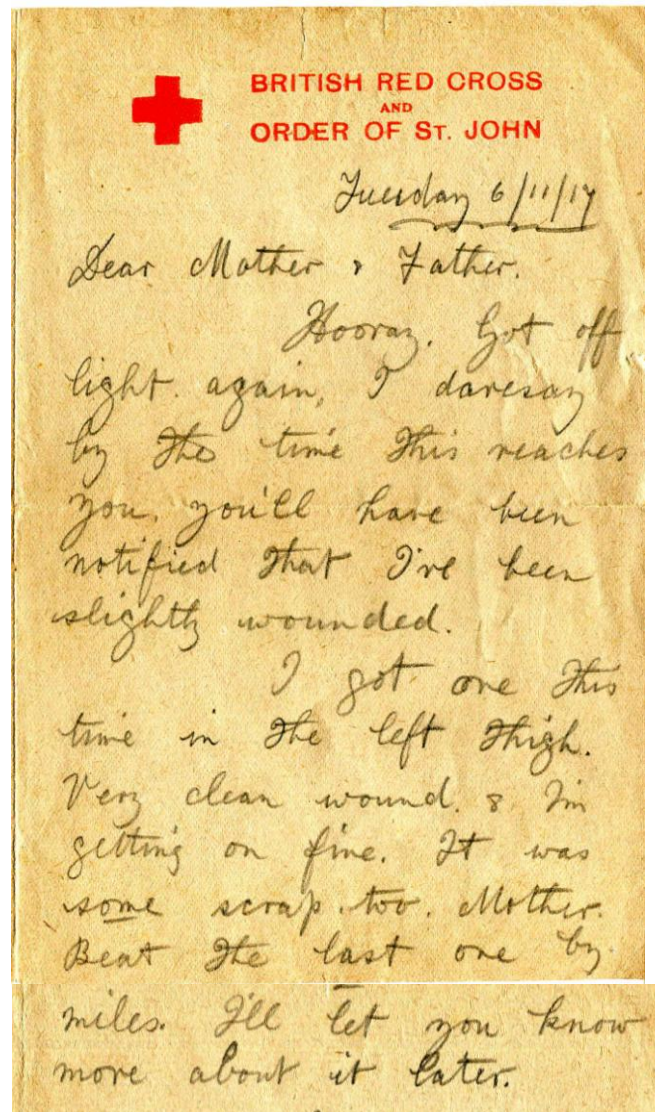 BRITISH RED CROSS
AND
ORDER OF ST. JOHN
Tuesday 6/11/17
Dear Mother & Father.
Hooray. Got off
light again, I daresay
by the time this reaches
you, you'll have been
notified that I've been
slightly wounded.
I got one this
time in the left thigh.
Very clean wound. & I'm
getting on fine. It was
some scrap too. Mother.
Beat the last one by
miles. I'll let you know
more about it later.